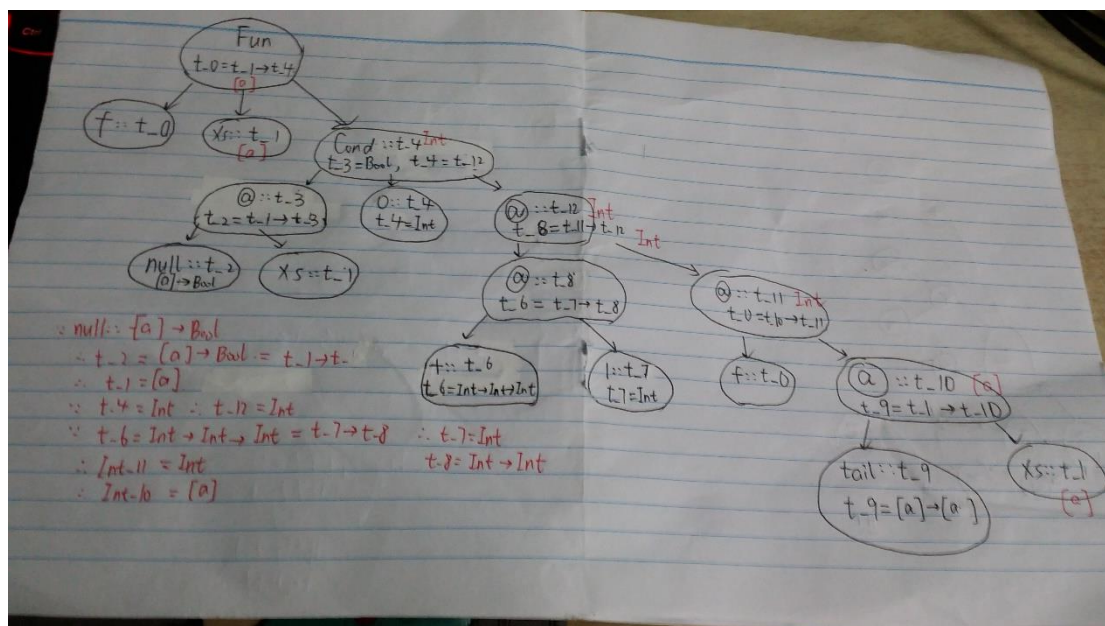 Fun
t_0=t_1→t_4
[a]
f::t_0
xs::t_1
[a]
Cond::t_4 Int
t_3=Bool, t_4=t_12
@::t_3
t_2=t_1→t_3
0::t_4
t_4=Int
@::t_12 Int
t_8=t_11→t_12
Int
null::t_2
[a]→Bool
xs::t_1
@::t_8
t_6=t_7→t_8
@::t_11 Int
t_0=t_10→t_11
+::t_6
t_6=Int→Int→Int
1::t_7
t_7=Int
f::t_0
@::t_10 [a]
t_9=t_1→t_10
tail::t_9
t_9=[a]→[a]
xs::t_1
[a]
∵ null::[a]→Bool
∴ t_2=[a]→Bool=t_1→t_
∴ t_1=[a]
∵ t_4=Int ∴ t_12=Int
∵ t_6=Int→Int→Int=t_7→t_8 ∴ t_7=Int
t_8=Int→Int
∴ Int_11=Int
∴ Int_10=[a]